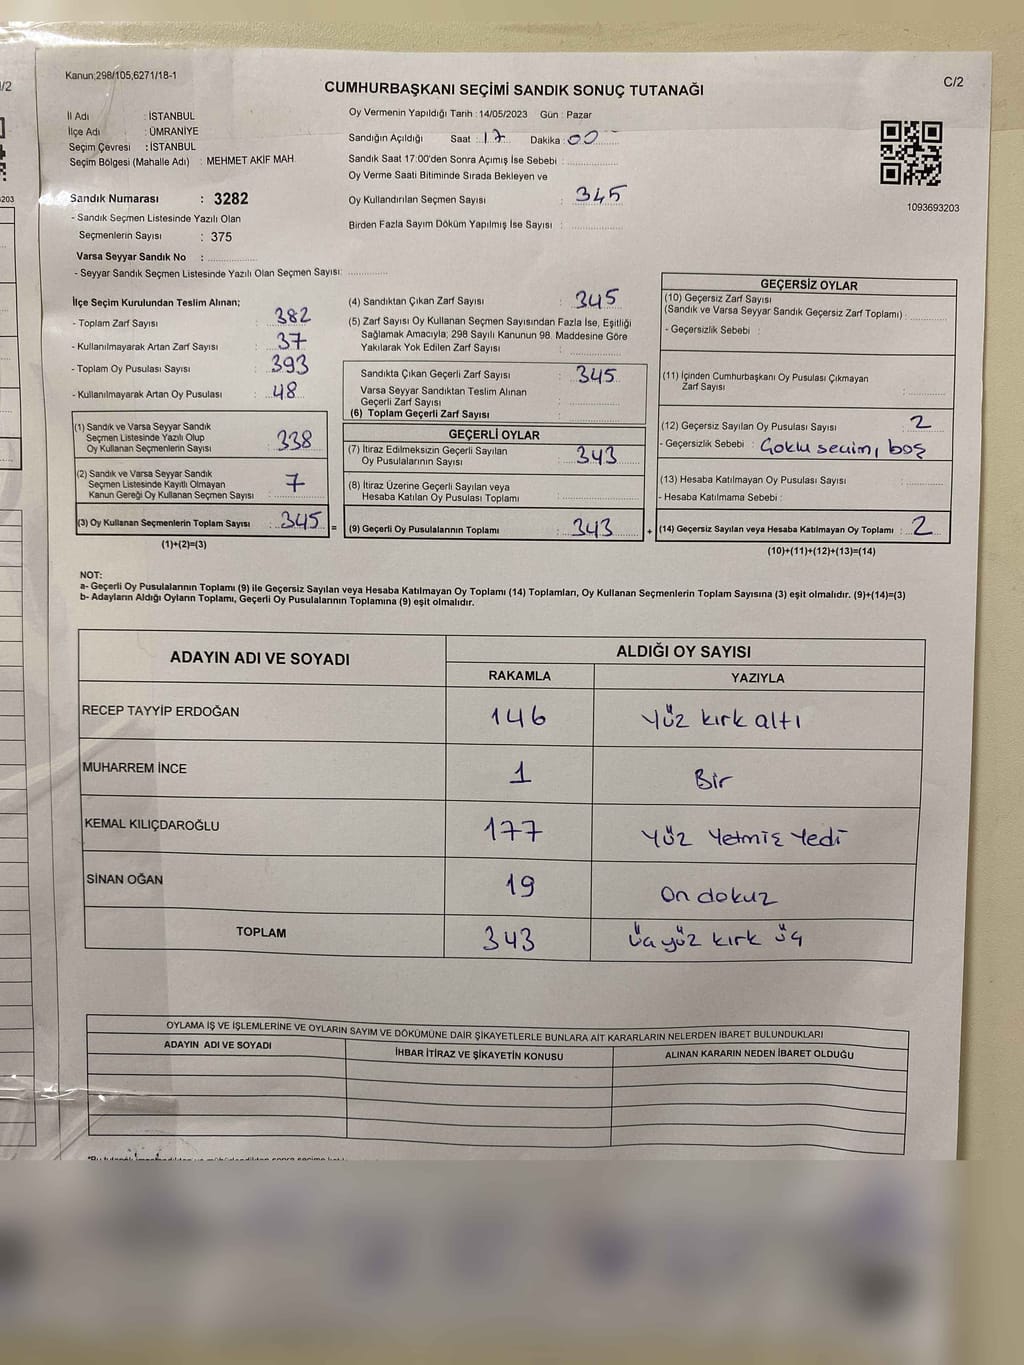 Kanun:298/105,6271/18-1
C/2
CUMHURBAŞKANI SEÇİMİ SANDIK SONUÇ TUTANAĞI
İl Adı : İSTANBUL
İlçe Adı : ÜMRANİYE
Seçim Çevresi : İSTANBUL
Seçim Bölgesi (Mahalle Adı) : MEHMET AKİF MAH.
Sandık Numarası : 3282
- Sandık Seçmen Listesinde Yazılı Olan
Seçmenlerin Sayısı : 375
Varsa Seyyar Sandık No :
- Seyyar Sandık Seçmen Listesinde Yazılı Olan Seçmen Sayısı:
Oy Vermenin Yapıldığı Tarih : 14/05/2023 Gün : Pazar
Sandığın Açıldığı Saat : 17 Dakika : 00
Sandık Saat 17:00'den Sonra Açımış İse Sebebi :
Oy Verme Saati Bitiminde Sırada Bekleyen ve
Oy Kullandırılan Seçmen Sayısı : 345
Birden Fazla Sayım Döküm Yapılmış İse Sayısı :
1093693203
İlçe Seçim Kurulundan Teslim Alınan;
- Toplam Zarf Sayısı : 382
- Kullanılmayarak Artan Zarf Sayısı : 37
- Toplam Oy Pusulası Sayısı : 393
- Kullanılmayarak Artan Oy Pusulası : 48
(1) Sandık ve Varsa Seyyar Sandık
Seçmen Listesinde Yazılı Olup
Oy Kullanan Seçmenlerin Sayısı : 338
(2) Sandık ve Varsa Seyyar Sandık
Seçmen Listesinde Kayıtlı Olmayan
Kanun Gereği Oy Kullanan Seçmen Sayısı : 7
(3) Oy Kullanan Seçmenlerin Toplam Sayısı : 345 =
(1)+(2)=(3)
(4) Sandıktan Çıkan Zarf Sayısı : 345
(5) Zarf Sayısı Oy Kullanan Seçmen Sayısından Fazla İse, Eşitliği
Sağlamak Amacıyla; 298 Sayılı Kanunun 98. Maddesine Göre
Yakılarak Yok Edilen Zarf Sayısı :
Sandıkta Çıkan Geçerli Zarf Sayısı : 345
Varsa Seyyar Sandıktan Teslim Alınan
Geçerli Zarf Sayısı :
(6) Toplam Geçerli Zarf Sayısı :
GEÇERLİ OYLAR
(7) İtiraz Edilmeksizin Geçerli Sayılan
Oy Pusulalarının Sayısı : 343
(8) İtiraz Üzerine Geçerli Sayılan veya
Hesaba Katılan Oy Pusulası Toplamı :
(9) Geçerli Oy Pusulalarının Toplamı : 343 +
GEÇERSİZ OYLAR
(10) Geçersiz Zarf Sayısı
(Sandık ve Varsa Seyyar Sandık Geçersiz Zarf Toplamı) :
- Geçersizlik Sebebi :
(11) İçinden Cumhurbaşkanı Oy Pusulası Çıkmayan
Zarf Sayısı :
(12) Geçersiz Sayılan Oy Pusulası Sayısı : 2
- Geçersizlik Sebebi : Çoklu seçim, boş
(13) Hesaba Katılmayan Oy Pusulası Sayısı :
- Hesaba Katılmama Sebebi :
(14) Geçersiz Sayılan veya Hesaba Katılmayan Oy Toplamı : 2
(10)+(11)+(12)+(13)=(14)
NOT:
a- Geçerli Oy Pusulalarının Toplamı (9) ile Geçersiz Sayılan veya Hesaba Katılmayan Oy Toplamı (14) Toplamları, Oy Kullanan Seçmenlerin Toplam Sayısına (3) eşit olmalıdır. (9)+(14)=(3)
b- Adayların Aldığı Oyların Toplamı, Geçerli Oy Pusulalarının Toplamına (9) eşit olmalıdır.
ADAYIN ADI VE SOYADI ALDIĞI OY SAYISI
RAKAMLA YAZIYLA
RECEP TAYYİP ERDOĞAN 146 Yüz kırk altı
MUHARREM İNCE 1 Bir
KEMAL KILIÇDAROĞLU 177 Yüz Yetmiş Yedi
SİNAN OĞAN 19 On dokuz
TOPLAM 343 Üç yüz kırk üç
OYLAMA İŞ VE İŞLEMLERİNE VE OYLARIN SAYIM VE DÖKÜMÜNE DAİR ŞİKAYETLERLE BUNLARA AİT KARARLARIN NELERDEN İBARET BULUNDUKLARI
ADAYIN ADI VE SOYADI İHBAR İTİRAZ VE ŞİKAYETİN KONUSU ALINAN KARARIN NEDEN İBARET OLDUĞU